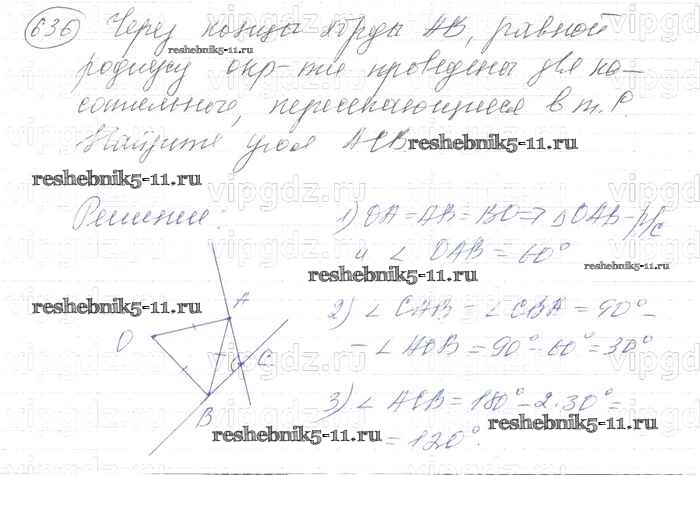 636 Через концы хорды AB, равной
радиусу окр-ти проведены две ка-
сательные, пересекающиеся в т. P.
Найдите угол ACB
reshebnik5-11.ru
reshebnik5-11.ru
vipgdz.ru
reshebnik5-11.ru
Решение:
1) OA = AB = BO => △ OAB - р/с
и ∠ OAB = 60°
reshebnik5-11.ru
reshebnik5-11.ru
reshebnik5-11.ru
2) ∠ CAB = ∠ CBA = 90° -
- ∠ AOB = 90° - 60° = 30°
A
O
C
B
3) ∠ ACB = 180° - 2·30° =
= 120°.
reshebnik5-11.ru
reshebnik5-11.ru